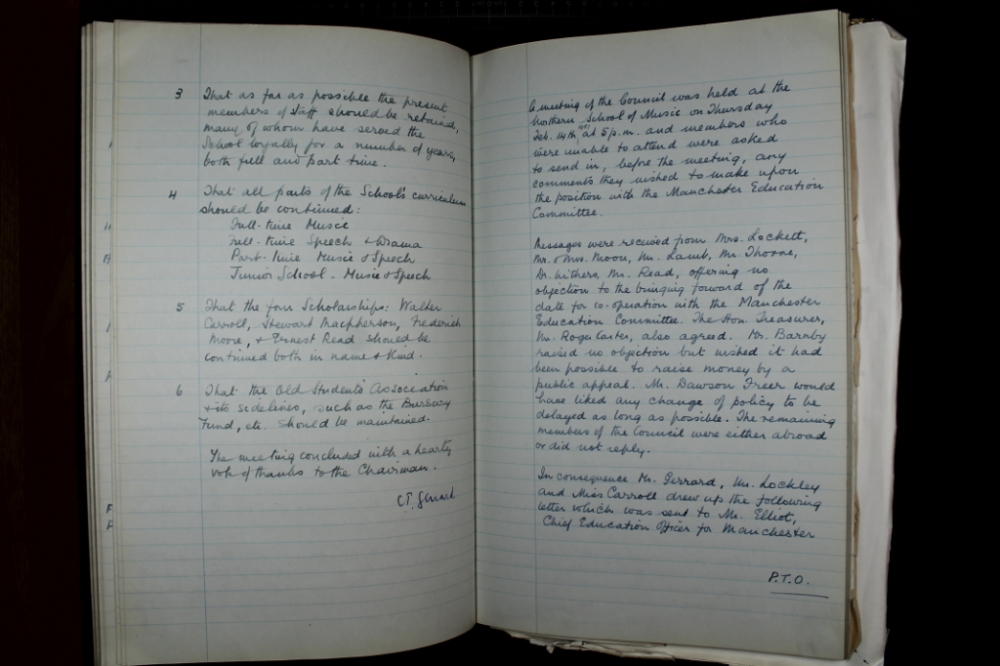 3 That as far as possible the present
members of Staff should be retained,
many of whom have served the
School loyally for a number of years,
both full and part time.
4 That all parts of the School's curriculum
should be continued:
Full-time Music
Full-time Speech & Drama
Part-time Music & Speech
Junior School. Music & Speech
5 That the four Scholarships: Walter
Carroll, Stewart Macpherson, Frederick
Moore, & Ernest Read should be
continued both in name & kind.
6 That the Old Students' Association
& its sidelines, such as the Bursary
Fund, etc. should be maintained.
The meeting concluded with a hearty
vote of thanks to the Chairman.
A meeting of the Council was held at the
Northern School of Music on Thursday
Feb. at 5 p.m. and members who
were unable to attend were asked
to send in, before the meeting, any
comments they wished to make upon
the position with the Manchester Education
Committee.
Messages were received from Mrs. Lockett,
Mr. & Mrs. Moon, Mr. Lamb, Mr. Thorne,
Dr. Withers, Mr. Read, offering no
objection to the bringing forward of the
date for co-operation with the Manchester
Education Committee. The Hon. Treasurer,
Mr. Roger Carter, also agreed. Mr. Barnby
raised no objection but wished it had
been possible to raise money by a
public appeal. Mr. Dawson Freer would
have liked any change of policy to be
delayed as long as possible. The remaining
members of the Council were either abroad
or did not reply.
In consequence Mr. Gerrard, Mr. Lockley
and Miss Carroll drew up the following
letter which was sent to Mr. Elliot,
Chief Education Officer for Manchester
P.T.O.